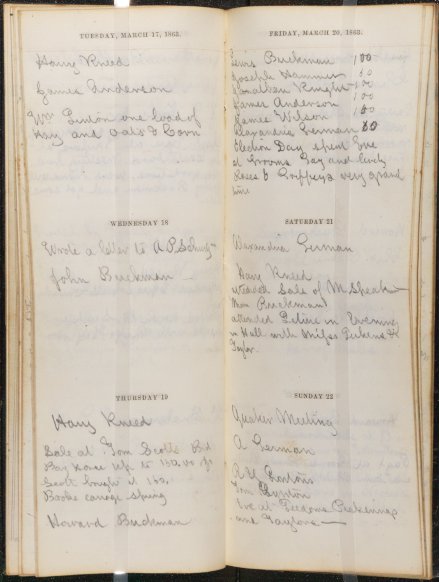 TUESDAY, MARCH 17, 1863.
Harry Kneed
James Anderson
Wm Linton one load of
Hay and Oats & Corn
WEDNESDAY 18
Wrote a letter to A P
John Buckman
THURSDAY 19
Harry Kneed
Sale at Tom Scotts Bid
Bay Horse up to 150
Scott bought at 160
Broke carrage spring
Howard Buckman
FRIDAY, MARCH 20, 1863.
Lewis Buckman 100
Joseph Hammer 50
Jonathan Knight 100
James Anderson 100
James Wilson 100
Alexandria German 60
Election Day spent Eve
at Grooms Gay and lively
Roses & very grand
time
SATURDAY 21
Alexandria German
Harry Kneed
attended Sale of M
Buckman
attended in Evening
in Hall with Miss &
Taylor
SUNDAY 22
Quaker Meeting
A German
Lintons
Tom
Eve at
and Taylors